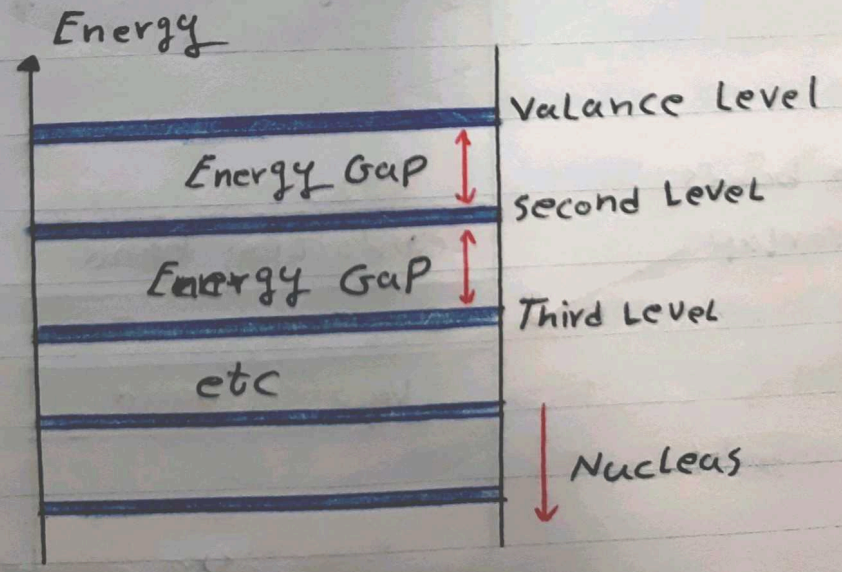 Energy
Valance Level
Energy Gap
second Level
Energy Gap
Third Level
etc
Nucleas